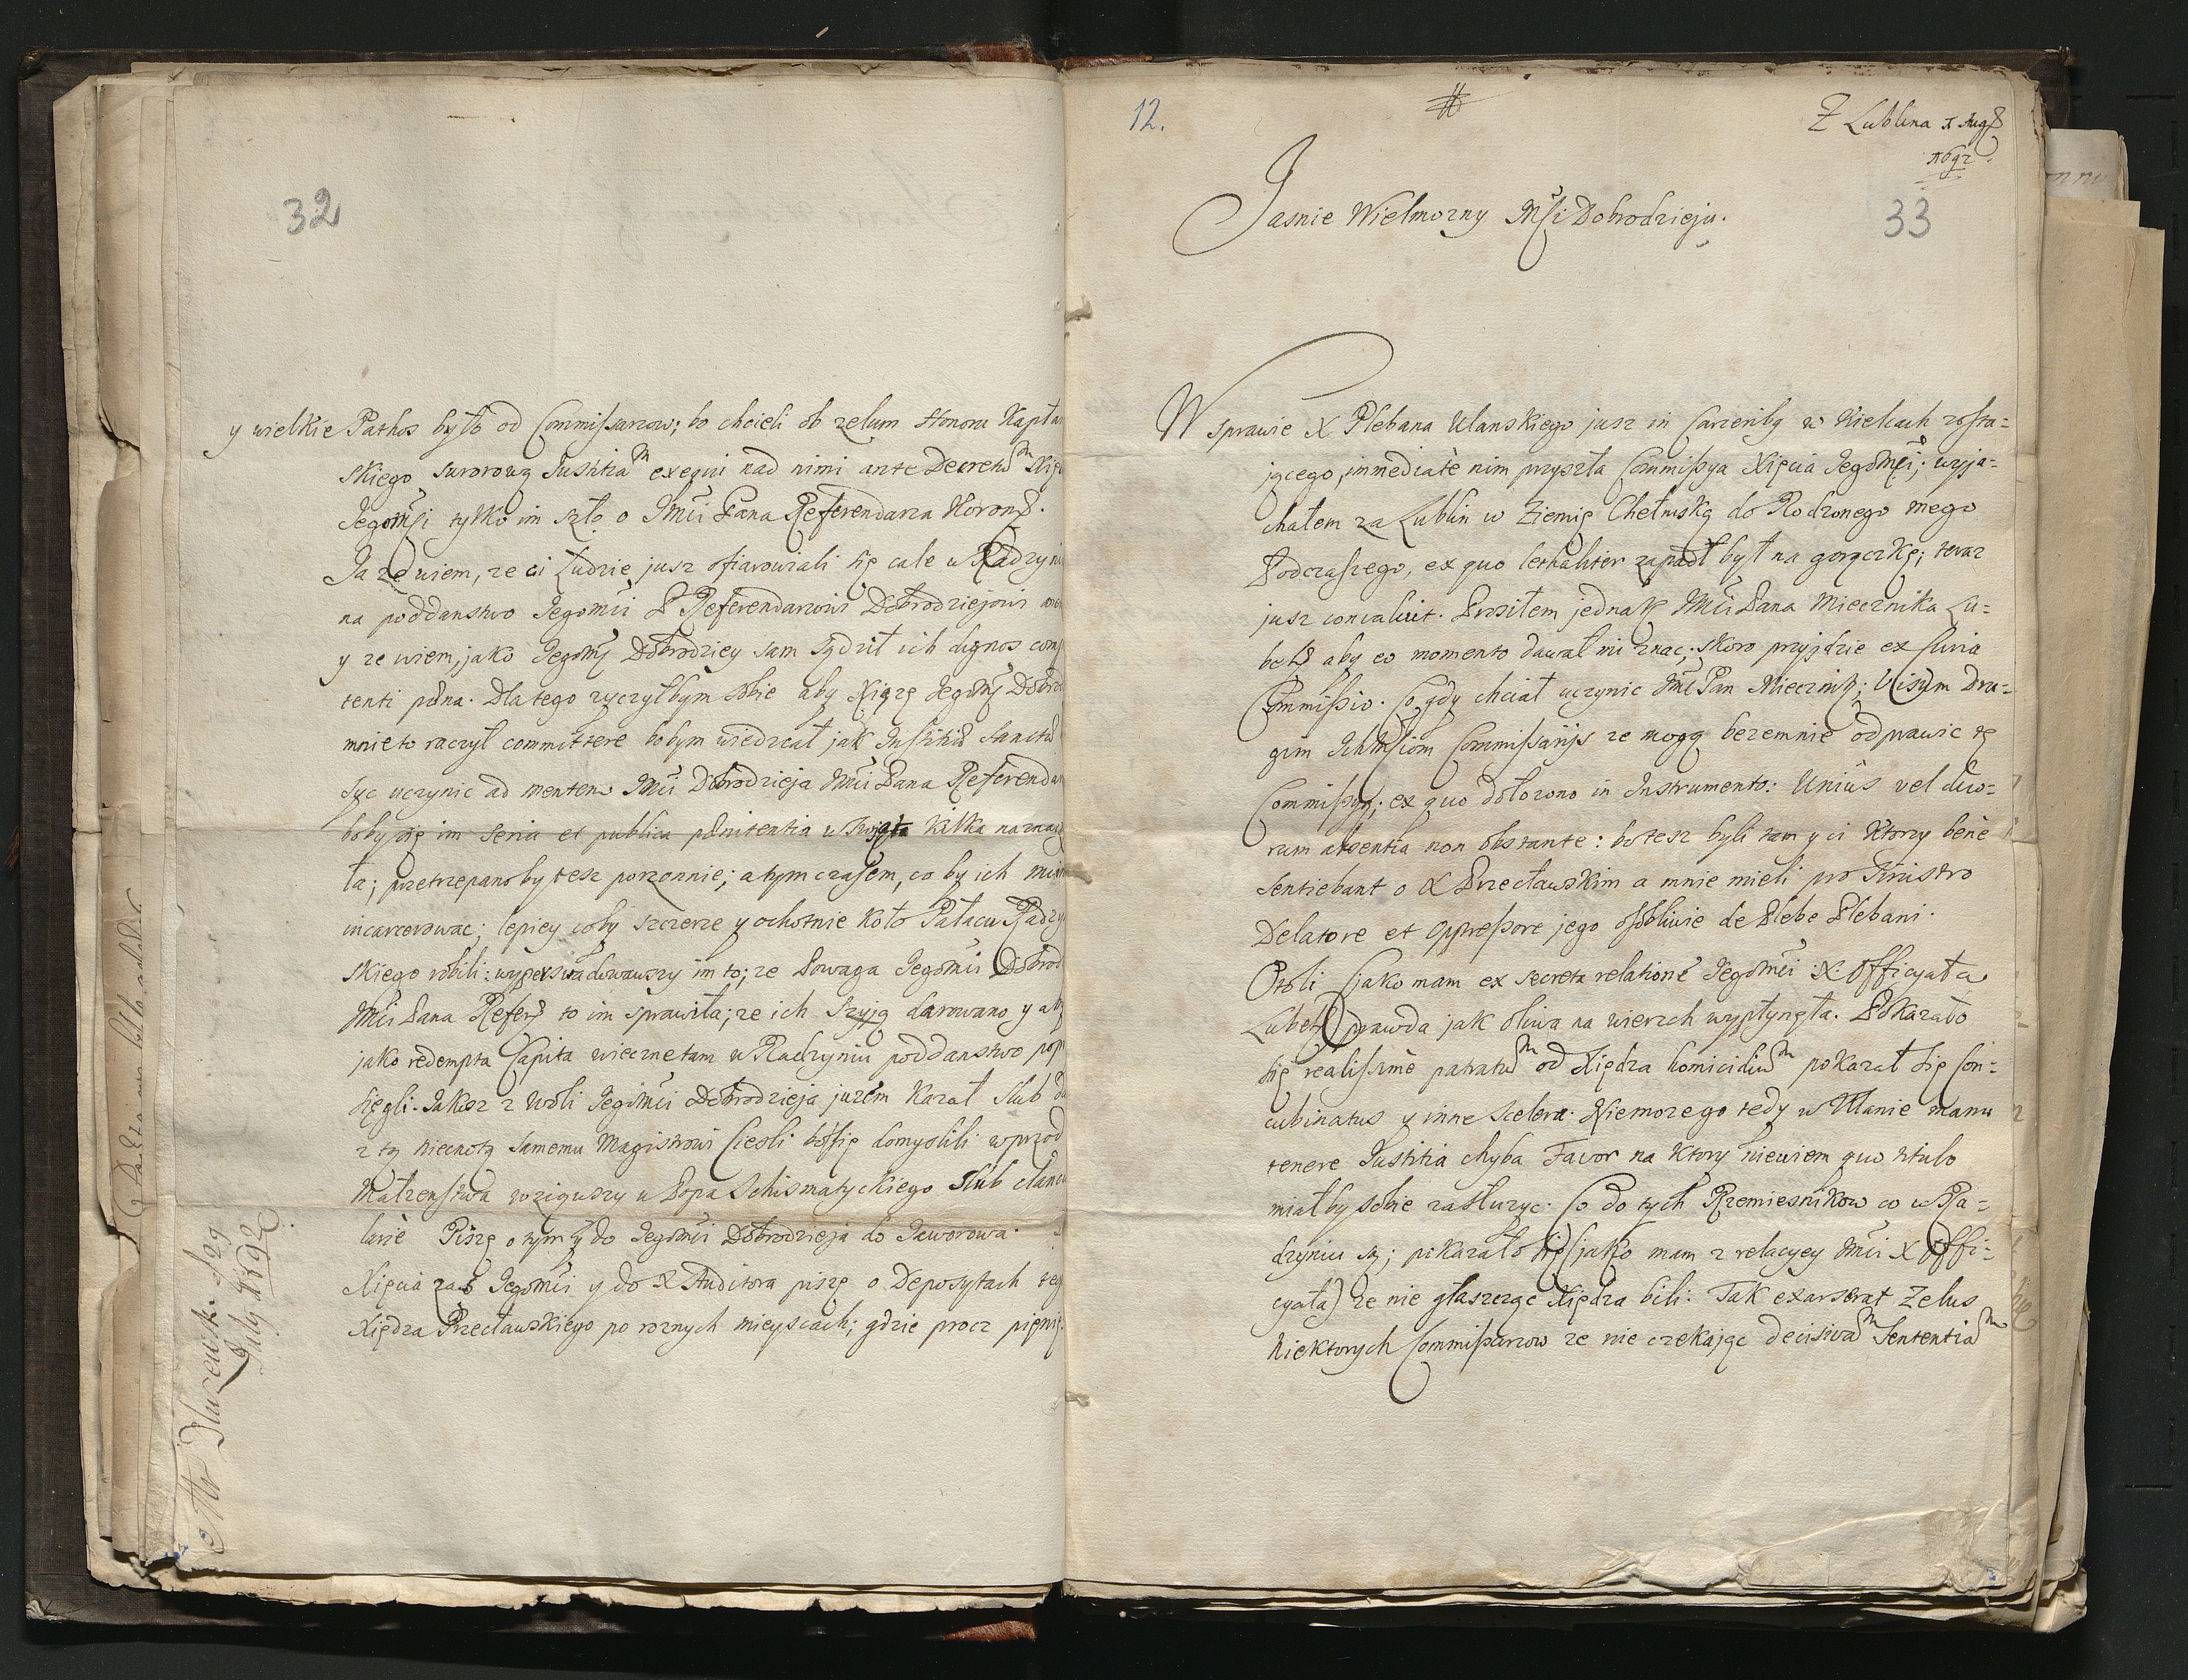 32
y wielkie Pathos było od Commissarzow; bo chcieli ob zelum Honoru Kapłan
skiego surorową Justitiam exequi nad nimi ante Decretum Xięc
Jegomsci tylko im szło o JMści Pana Referendarza Korons.
Ja ze wiem, ze ci Ludzie jusz ofiarowali się cale w Radzyni
na poddanstwo Jegomści P Referendarzowi Dobrodziejowi
y ze wiem, jako Jegomś Dobrodziey sam sądził ich dignos com
tenti pœna. Dlatego zyczył bym sobie aby Xiąze Jegomś Dobro
mnie to raczył committere bobym wiedział jak Justitiæ sanctæ
syc uczynic ad mentem JMści Dobrodzieja JMści Pana Referendar
boby się im seria et publica pœnitentia w Swięta kilka naznaczy
ła; przetrzepanoby tesz porzonnie; a tym czasem, co by ich
incarcerowac; lepiey coby szczerze y ochotnie koło Pałacu Radzy
skiego robili: wyperswadowawszy im to; ze Powaga Jegomści Dobrod
JMści Pana Refer to im sprawiła; ze ich Szyją darowano y aby
jako redempta Capita wieczne tam w Radzyniu poddanstwo pop
sięgli. Jakosz z woli Jegomści Dobrodzieja juzem kazał Slub
z tą niecnotą samemu Magistrowi Cieśli bo się domyślili wprzod
Małzenstwa wziąwszy u Popa Schismatyckiego Slub clancu
larie Piszę o tym y do Jegomści Dobrodzieja do Jaworowa.
Xięcia zas Jegomści y do X Auditora piszę o Depozytach teg
Xiędza Przecławskiego po roznych mieyscach; gdzie procz pienię
July 1692
12.
Z Lublina 1 Aug
1692
33
Jasnie Wielmozny Mści Dobrodzieju.
W sprawie X Plebana Ulanskiego jusz in Carceribus w Kielcach zosta=
jącego, immediate nim przyszła Commissya Xięcia Jegomści; wyja=
chałem za Lublin w Ziemię Chełmską do Rodzonego mego
Podczaszego, ex quo lethaliter zapadł był na gorączkę; teraz
jusz convaluit. Prosiłem jednak JMści Pana Miecznika Lu=
bels aby eo momento dawał mi znac; skoro przyjdzie ex Curia
Commissio. Co gdy chciał uczynic JMć Pan Miecznik; Visum Dru=
gim Ichmściom Commissarijs ze mogą bezemnie odprawic tę
Commissyą; ex quo dołozono in Instrumento: Unius vel duo=
rum absentia non obstante: bo tesz byli tam y ci ktorzy bene
sentiebant o X Przecławskim a mnie mieli pro Sinistro
Delatore et Oppressore jego osobliwie de Plebe Plebani.
Otoli (jako mam ex secreta relatione Jegomści X. Officyała
Lubel) prawda jak oliwa na wierzch wypłynęła. Pokazało
się realissime patratum od Xiędza homicidium pokazał się Con=
cubinatus y inne scelera. Niemoze go tedy w Ulanie manu
tenere Justitia chyba Favor na ktory niewiem quo titulo
miałby sobie zasłuzyc. Co do tych Rzemiesnikow co w Ra=
dzyniu są; pokazało się (jako mam z relacyey JMści X Offi=
cyała) ze nie głaszcząc Xiędza bili: Tak exarserat Zelus
niektorych Commissarzow ze nie czekając decisivam Sententiam